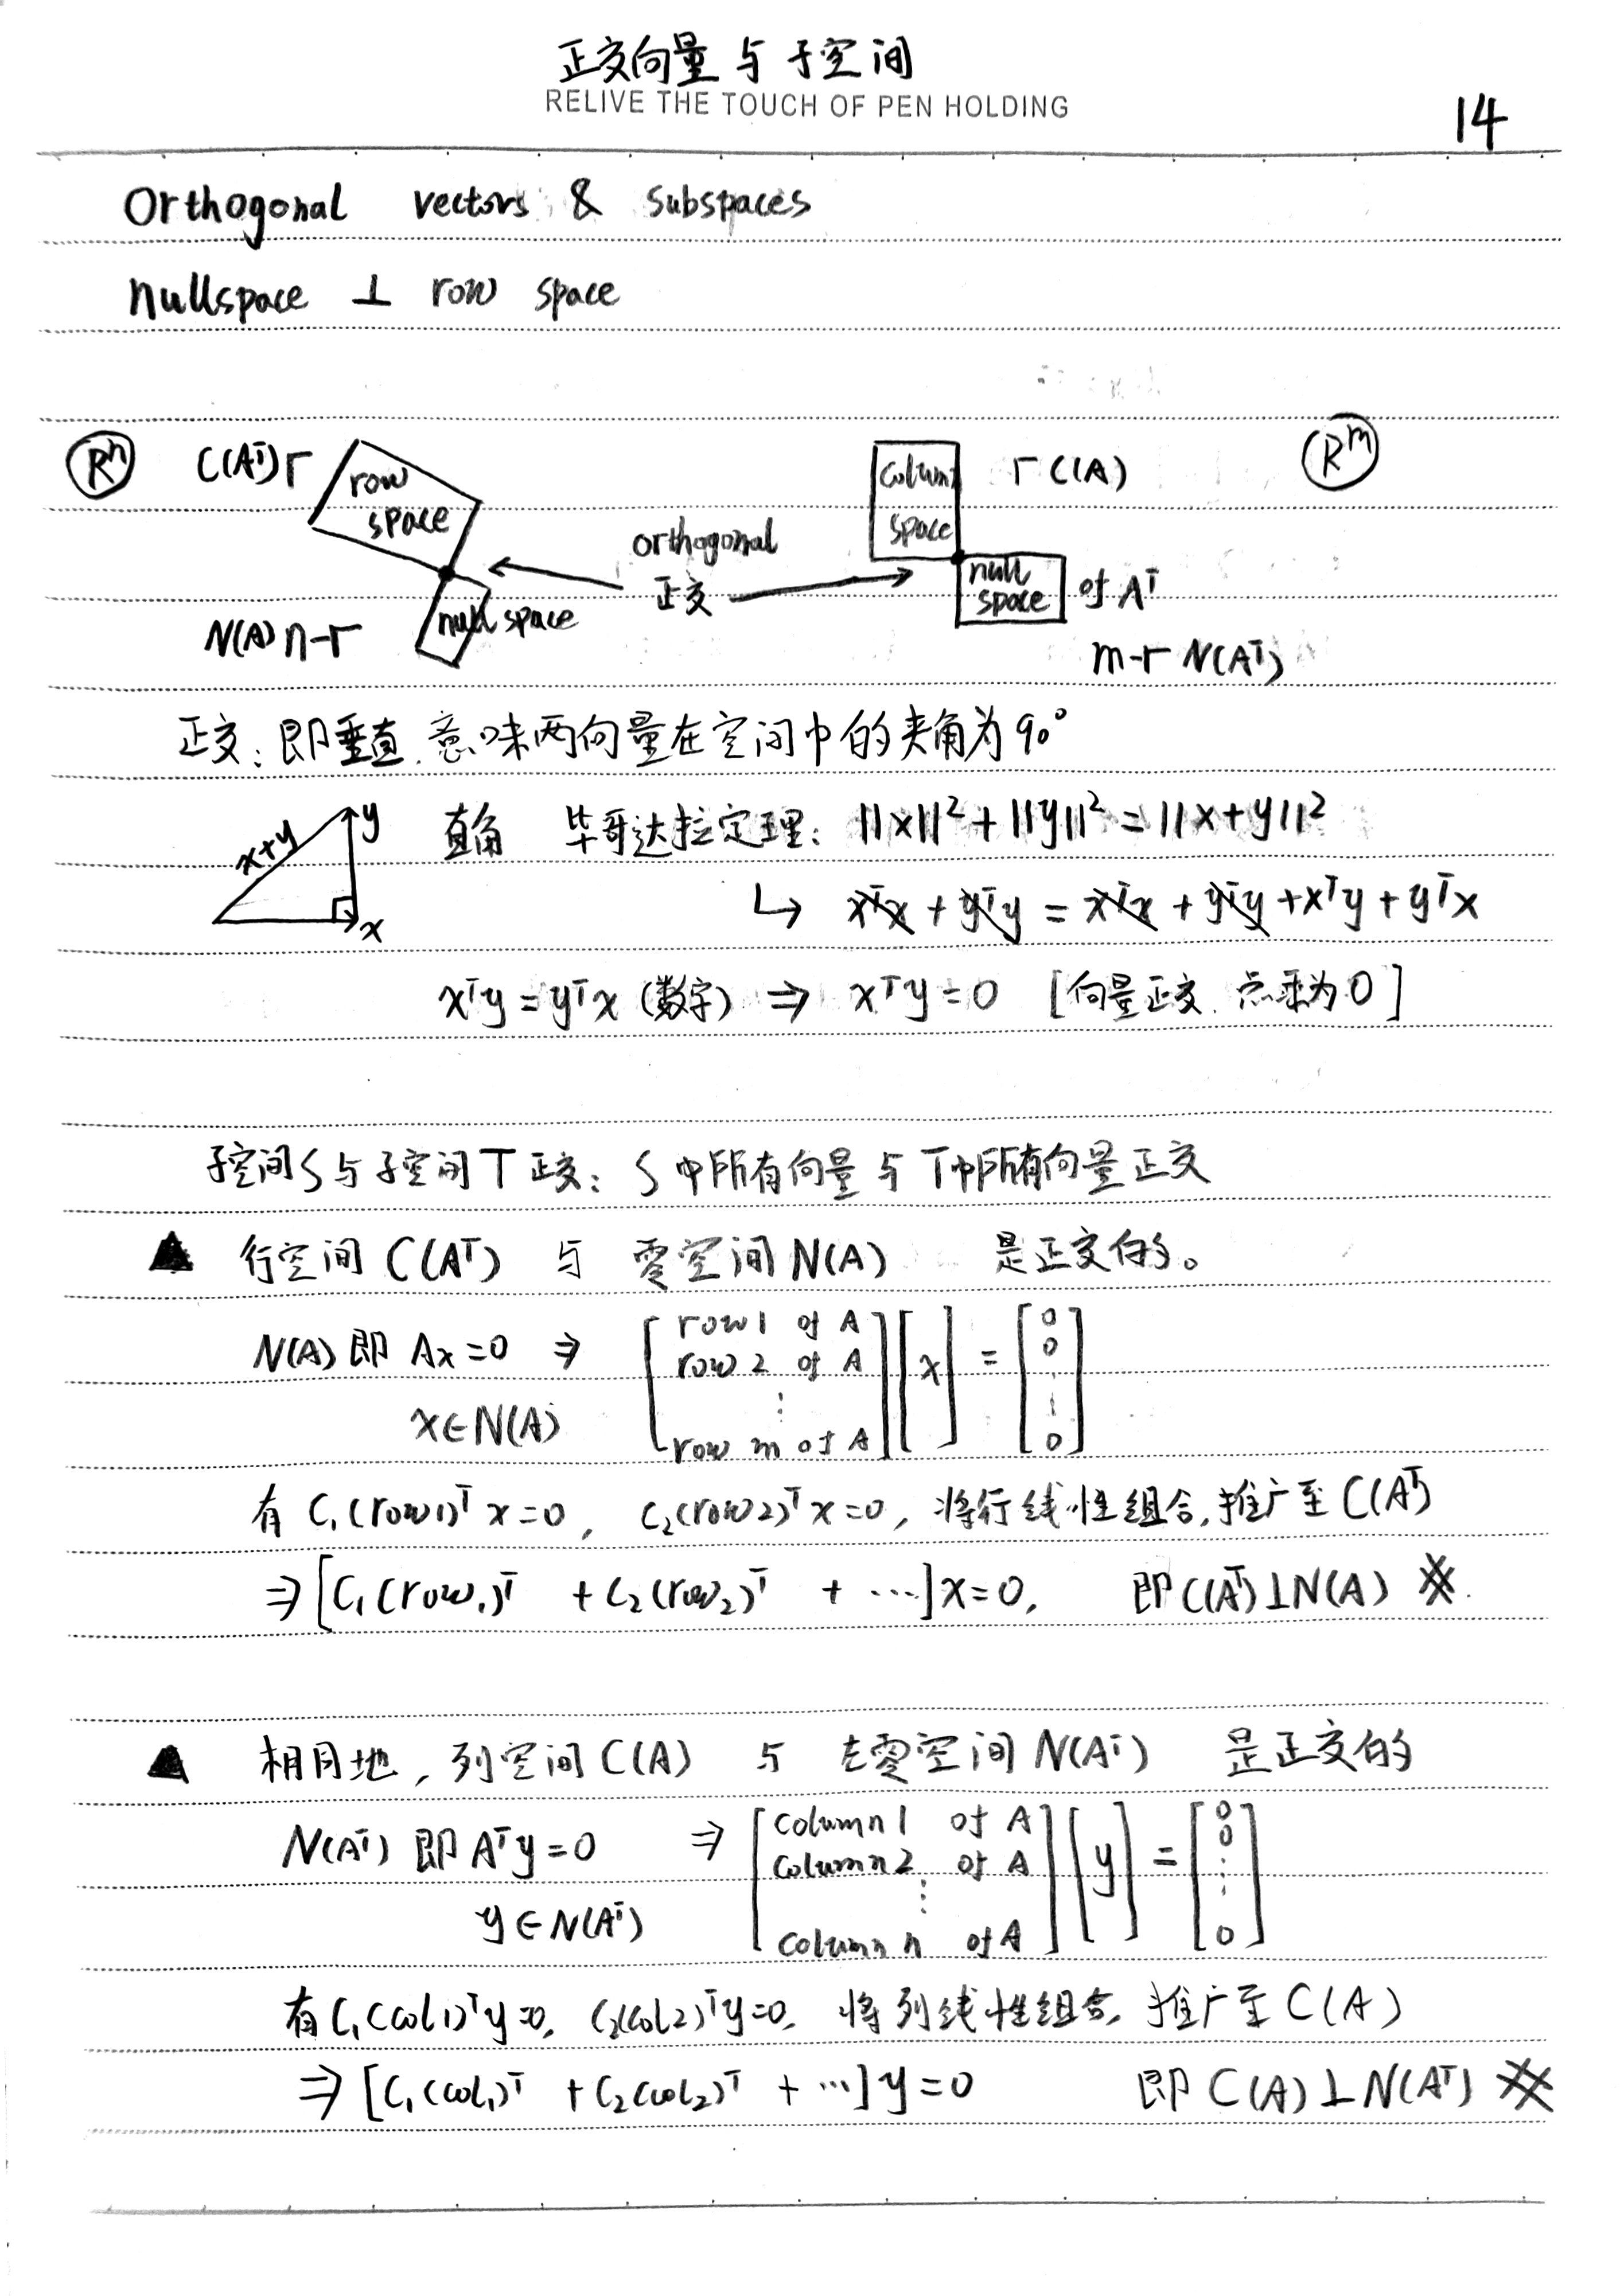 正交向量与子空间
RELIVE THE TOUCH OF PEN HOLDING
14
Orthogonal vectors & subspaces
nullspace ⊥ row space
Rⁿ C(Aᵀ) r row space
column space r C(A) Rᵐ
orthogonal
正交
N(A) n-r null space
null space of Aᵀ
m-r N(Aᵀ)
正交：即垂直，意味两向量在空间中的夹角为90°
x+y y x
直角 毕哥达拉定理：||x||²+||y||²=||x+y||²
↳ xᵀx + yᵀy = xᵀx + yᵀy + xᵀy + yᵀx
xᵀy = yᵀx (数字) ⇒ xᵀy = 0 [向量正交，点乘为0]
子空间S与子空间T正交：S中所有向量与T中所有向量正交
▲ 行空间 C(Aᵀ) 与 零空间 N(A) 是正交的。
N(A) 即 Ax=0 ⇒ [row 1 of A
row 2 of A
⋮
row m of A] [x] = [0 0 ⋮ 0]
x∈N(A)
有 C₁(row1)ᵀx=0, C₂(row2)ᵀx=0, 将行线性组合,推广至 C(Aᵀ)
⇒ [C₁(row₁)ᵀ + C₂(row₂)ᵀ + ⋯]x=0, 即 C(Aᵀ)⊥N(A) ※.
▲ 相同地, 列空间 C(A) 与 左零空间 N(Aᵀ) 是正交的
N(Aᵀ) 即 Aᵀy=0 ⇒ [column 1 of A
column 2 of A
⋮
column n of A] [y] = [0 0 ⋮ 0]
y∈N(Aᵀ)
有 C₁(col1)ᵀy=0, C₂(col2)ᵀy=0, 将列线性组合, 推广至 C(A)
⇒ [C₁(col₁)ᵀ + C₂(col₂)ᵀ + ⋯]y=0 即 C(A)⊥N(Aᵀ) ※